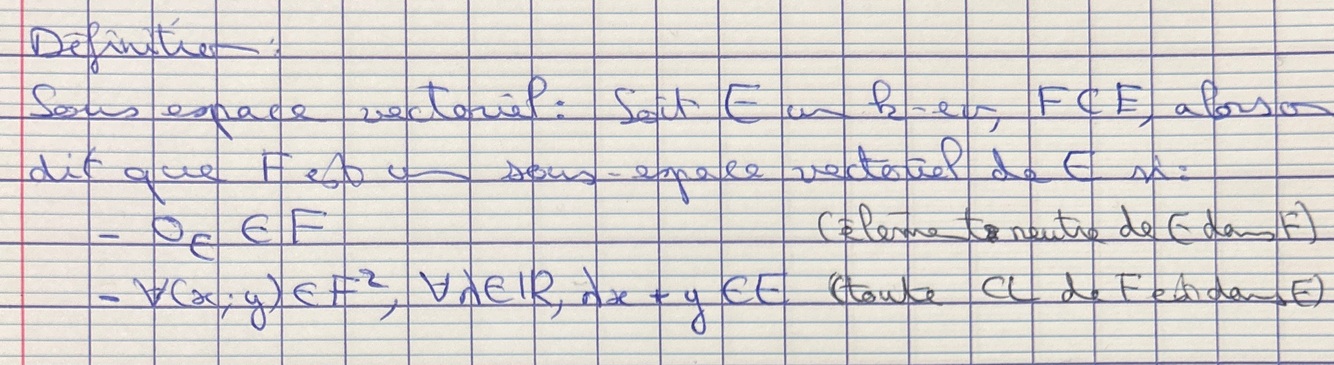 Définition :
Sous espace vectoriel : Soit E un k-ev, F⊂E, alors on
dit que F est un sous-espace vectoriel de E si :
- 0_E ∈ F (élément neutre de E dans F)
- ∀(x;y) ∈ F², ∀λ∈ℝ, λx + y ∈ E (toute CL de F est dans E)